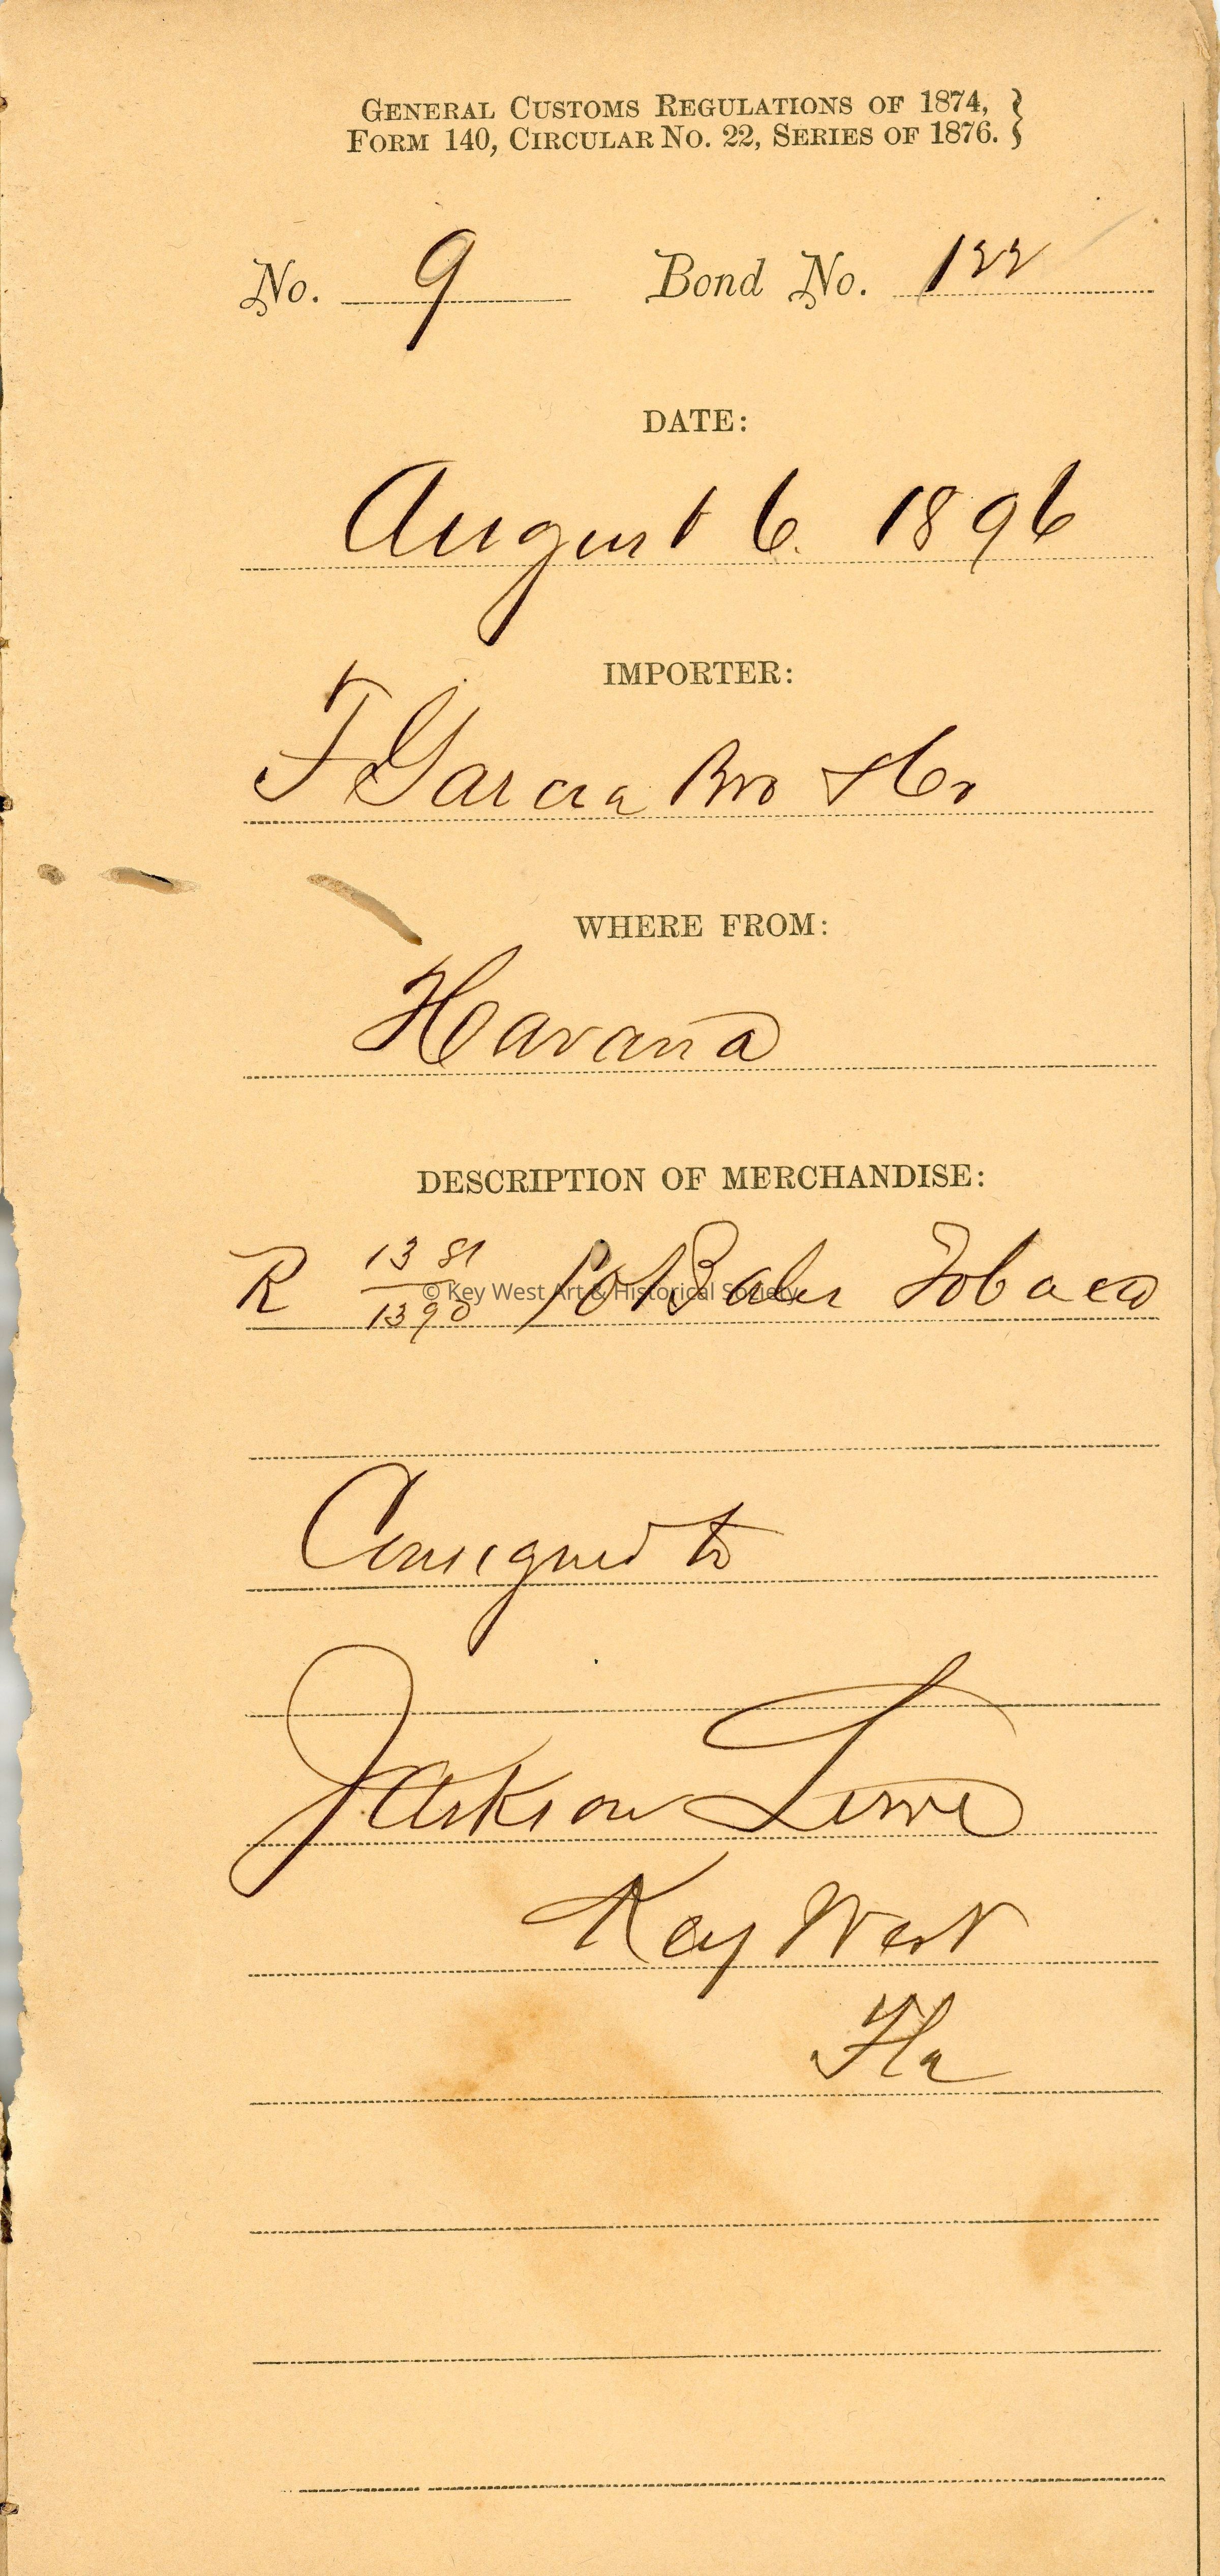 GENERAL CUSTOMS REGULATIONS OF 1874, }
FORM 140, CIRCULAR NO. 22, SERIES OF 1876. }
No. 9 Bond No. 122
DATE:
August 6. 1896
IMPORTER:
F Garcia Bro & Co
WHERE FROM:
Havana
DESCRIPTION OF MERCHANDISE:
R 1381/1390 10 Bales Tobacco
© Key West Art & Historical Society
Consigned to
Jackson Lowe
Key West
Fla